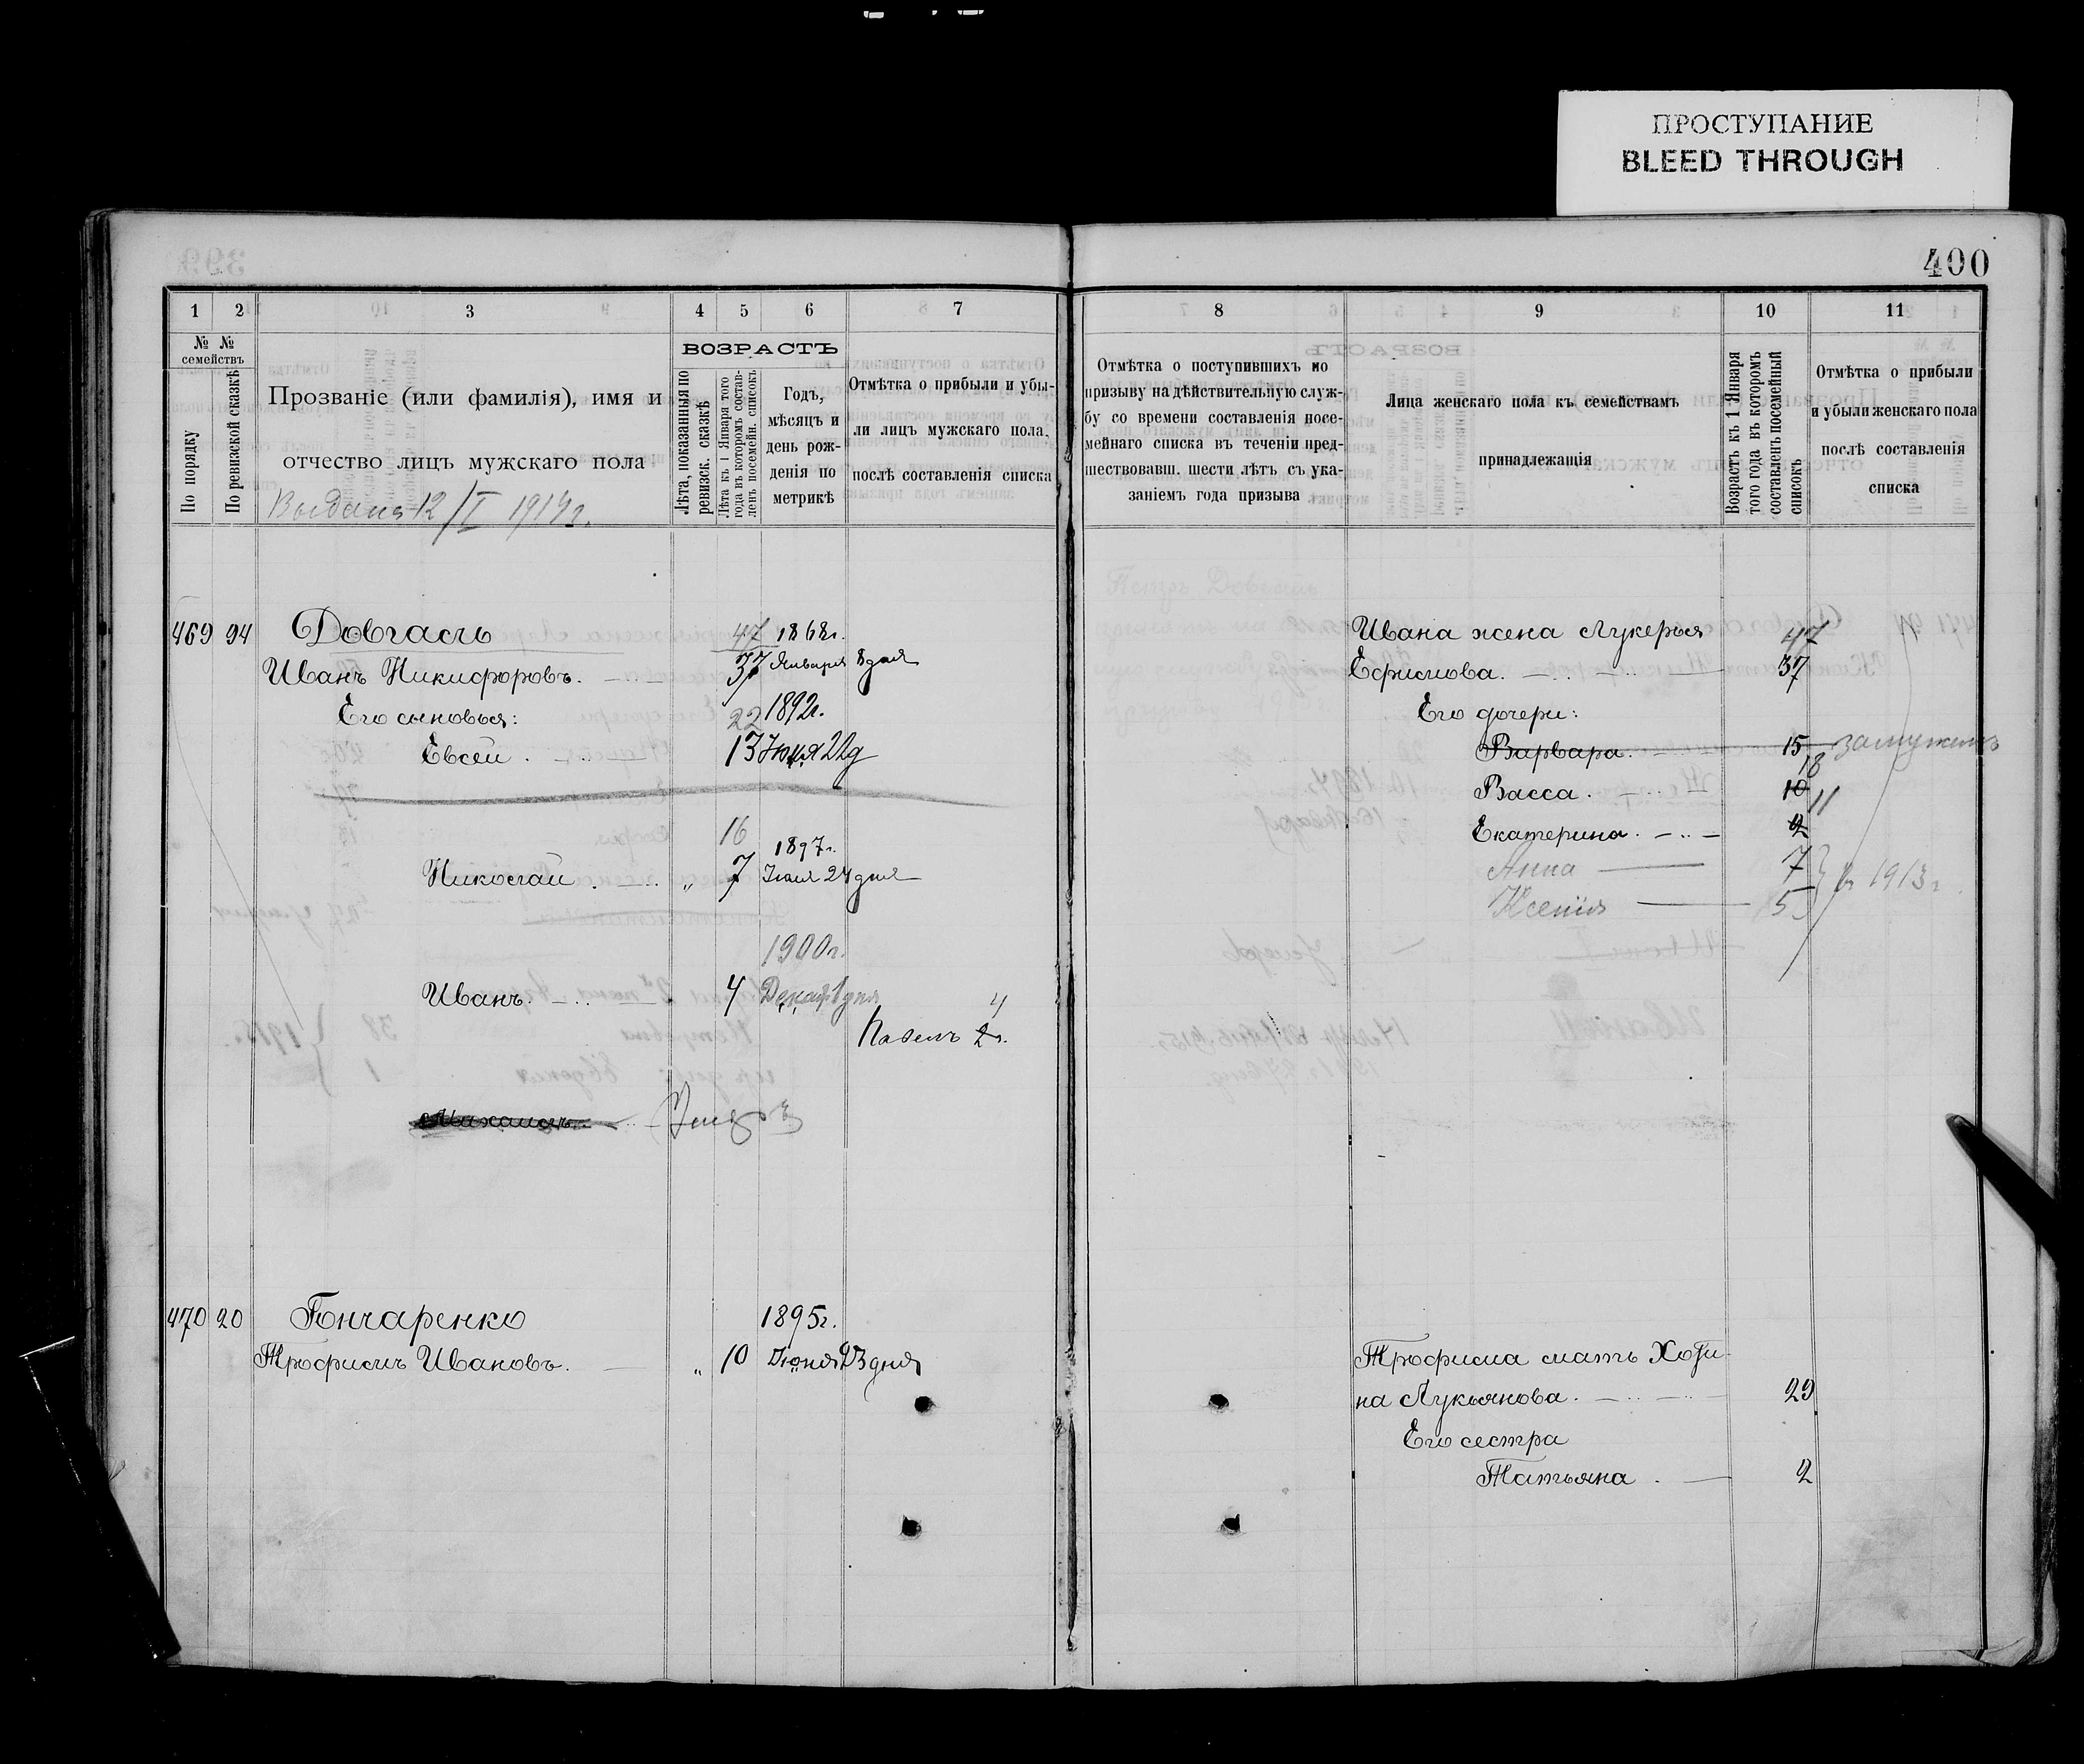 ПРОСТУПАНИЕ
BLEED THROUGH
400
1 2 3 4 5 6 7
№ № семействъ
По порядку
По ревизской сказкѣ
Прозваніе (или фамилія), имя и
отчество лицъ мужскаго пола
Выдана 12/I 1914г.
ВОЗРАСТЪ
Лѣта, показанныя по
ревизск. сказкѣ
Лѣта къ 1 Января того
года въ которомъ состав-
ленъ посемейн. списокъ
Годъ,
мѣсяцъ и
день рож-
денія по
метрикѣ
Отмѣтка о прибыли и убы-
ли лицъ мужскаго пола,
послѣ составленія списка
469 94 Довгаль 47 1868г.
Иванъ Никифоровъ. 37 Января 8 дня
Его сыновья: 22 1892г.
Евсей. 13 22д
16 1897г.
Николай. „ 7 24 дня
1900г.
Иванъ. 4 Декаб. 1 дня
4
Павелъ 2г.
Михаилъ. Умеръ
470 20 Гончаренко 1895г.
Трофимъ Ивановъ. „ 10 Іюня 23 дня
8 9 10 11
Отмѣтка о поступившихъ по
призыву на дѣйствительную служ-
бу со времени составленія посе-
мейнаго списка въ теченіи пред-
шествовавш. шести лѣтъ съ ука-
заніемъ года призыва
Лица женскаго пола къ семействамъ
принадлежащія
Возрастъ къ 1 Января
того года въ которомъ
составленъ посемейный
списокъ
Отмѣтка о прибыли
и убыли женскаго пола
послѣ составленія
списка
Ивана жена Лукерья 47
Ефимова. 37
Его дочери:
Варвара. 15 замужемъ
18
Васса. 10
11
Екатерина. 2
Анна 7
Ксенія 5 } в 1913г.
Трофима мать
на Лукьянова. 29
Его сестра
Татьяна. 2